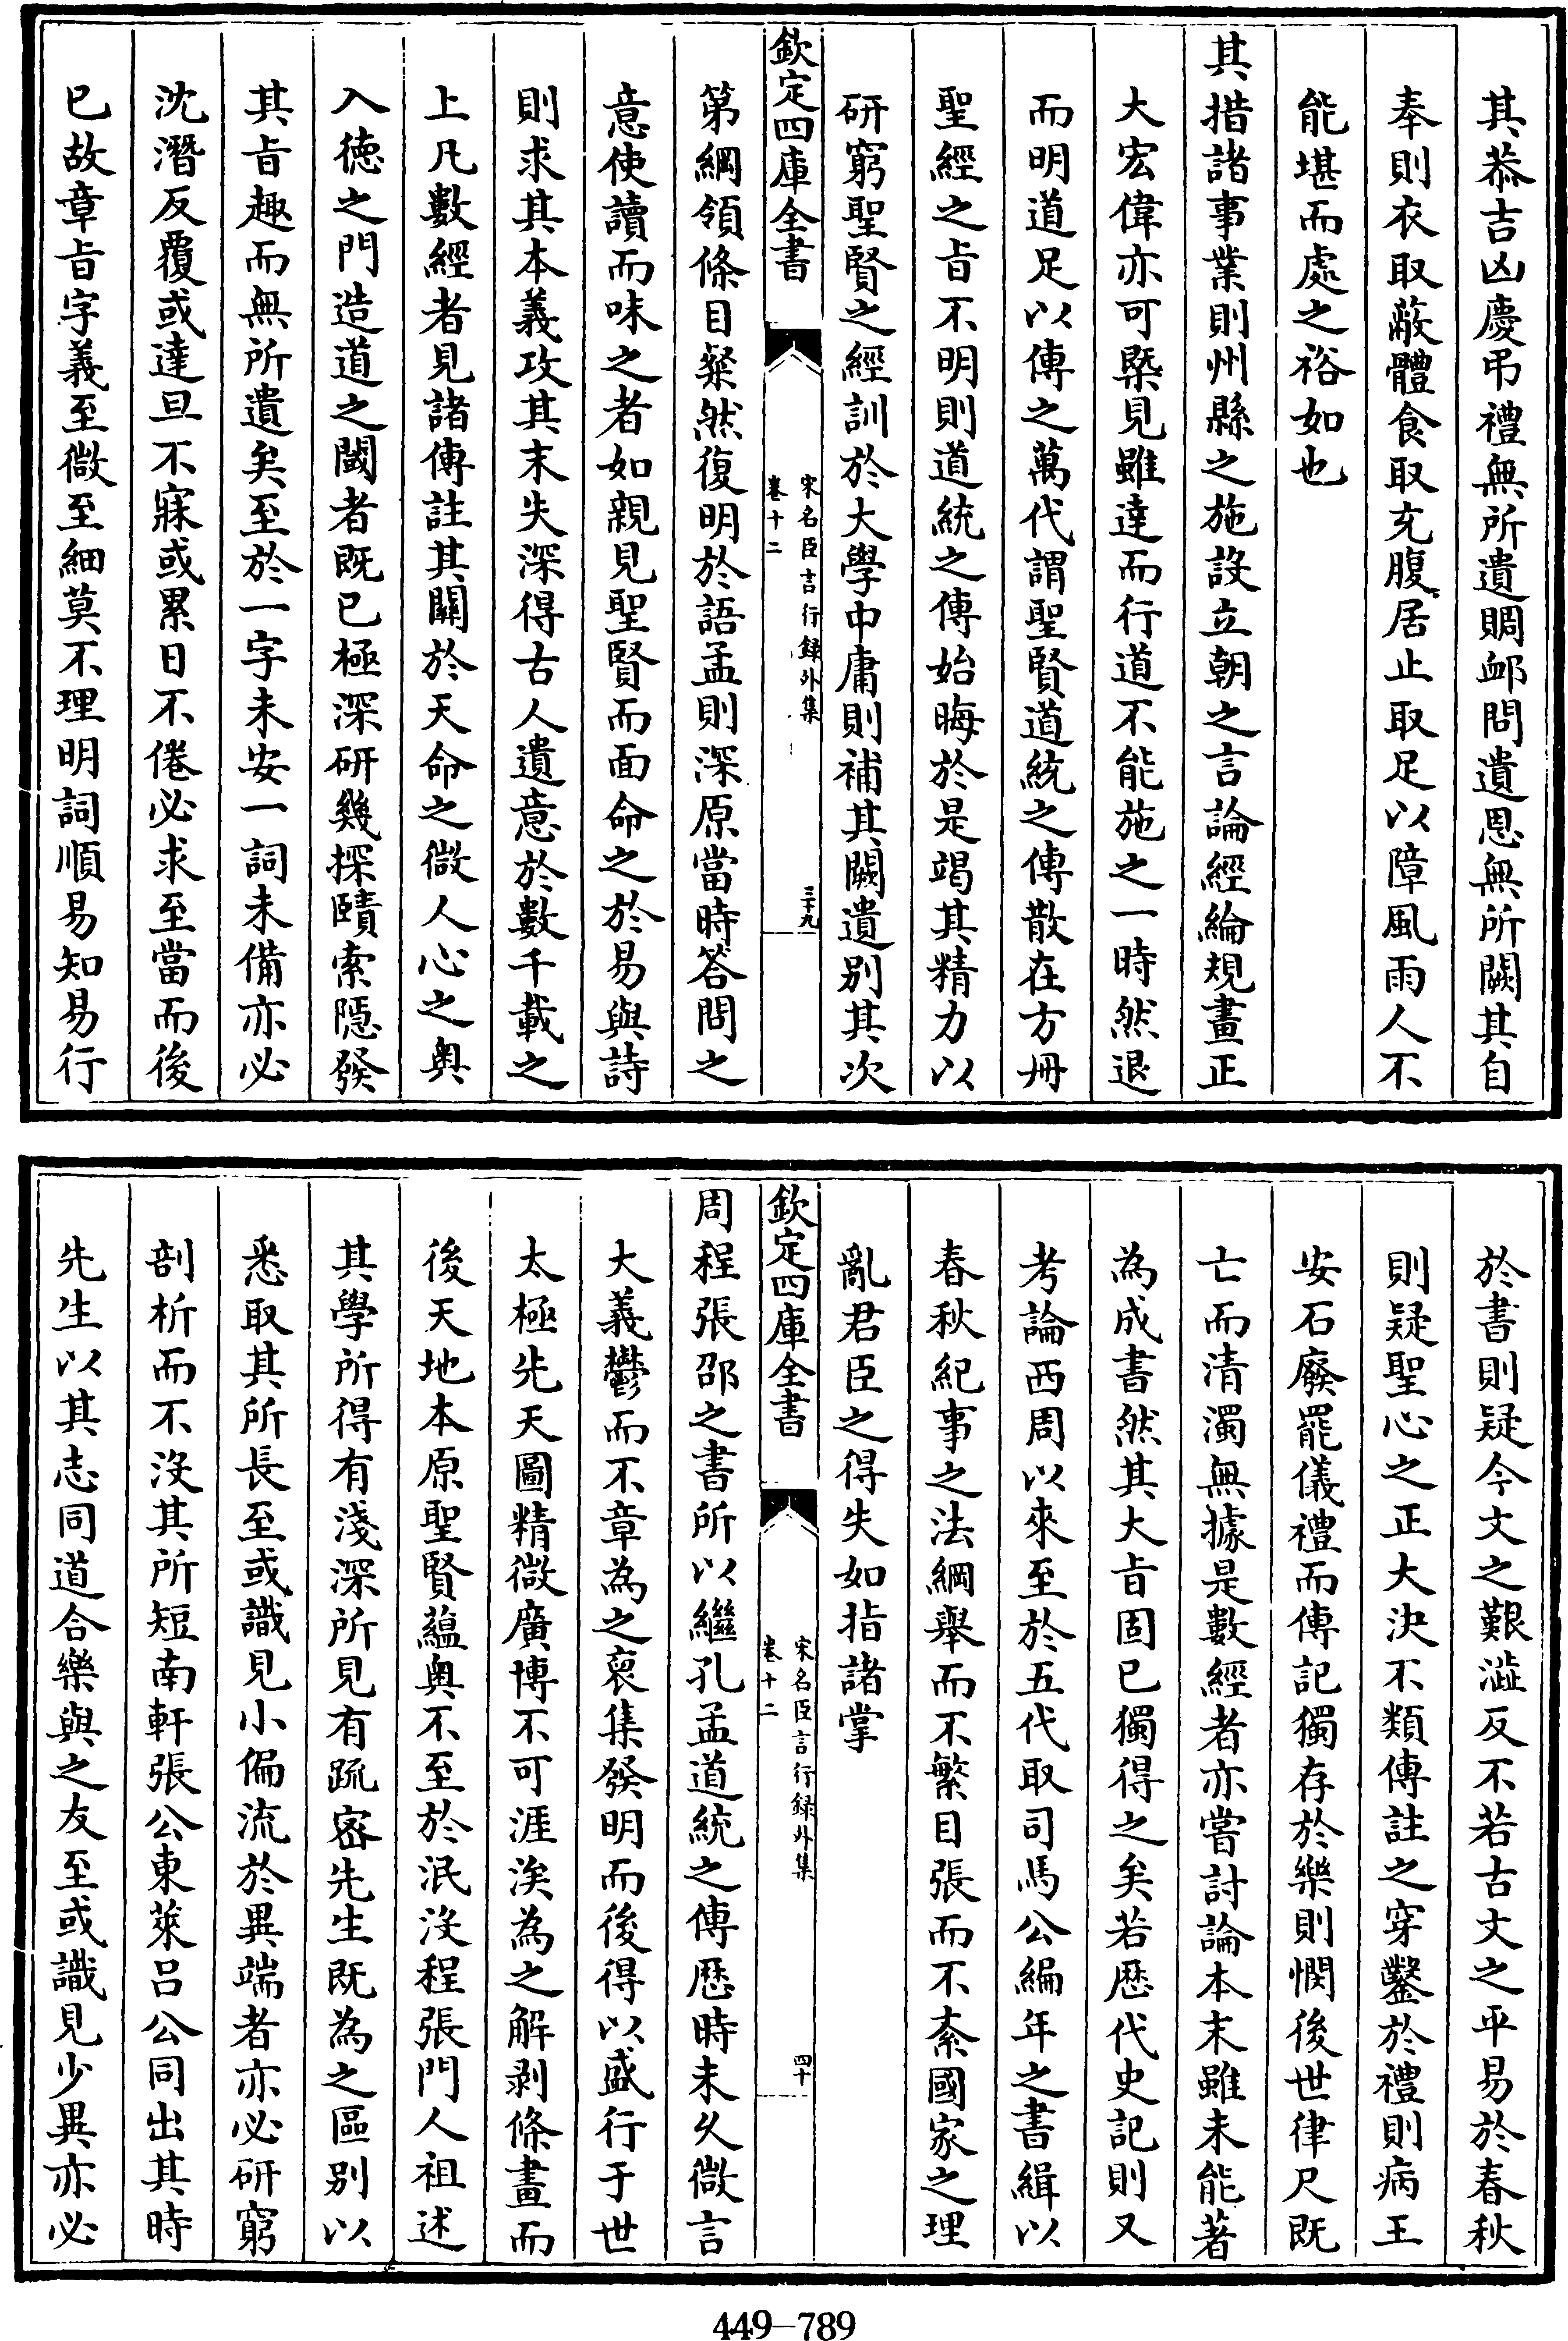 其恭吉凶慶弔禮無所遺賙䘏問遺恩無所闕其自
奉則衣取蔽體食取充腹居止取足以障風雨人不
能堪而處之裕如也
其措諸事業則州縣之施設立朝之言論經綸規畫正
大宏偉亦可槩見雖達而行道不能施之一時然退
而明道足以傳之萬代謂聖賢道統之傳散在方冊
聖經之旨不明則道統之傳始晦於是竭其精力以
研窮聖賢之經訓於大學中庸則補其闕遺别其次
欽定四庫全書
宋名臣言行録外集
卷十二
三十九
第綱領條目粲然復明於語孟則深原當時答問之
意使讀而味之者如親見聖賢而面命之於易與詩
則求其本義攻其末失深得古人遺意於數千載之
上凡數經者見諸傳註其關於天命之微人心之奥
入徳之門造道之閾者既已極深研幾探賾索隱發
其旨趣而無所遺矣至於一字未安一詞未備亦必
沈潛反覆或達旦不寐或累日不倦必求至當而後
已故章旨字義至微至細莫不理明詞順易知易行
於書則疑今文之艱澁反不若古文之平易於春秋
則疑聖心之正大決不類傳註之穿鑿於禮則病王
安石廢罷儀禮而傳記獨存於樂則憫後世律尺既
亡而清濁無據是數經者亦嘗討論本末雖未能著
為成書然其大旨固已獨得之矣若歴代史記則又
考論西周以來至於五代取司馬公編年之書緝以
春秋紀事之法綱舉而不繁目張而不紊國家之理
亂君臣之得失如指諸掌
欽定四庫全書
宋名臣言行録外集
卷十二
四十
周程張邵之書所以繼孔孟道統之傳歴時未久微言
大義鬱而不章為之裒集發明而後得以盛行于世
太極先天圖精微廣博不可涯涘為之解剥條畫而
後天地本原聖賢蘊奥不至於泯沒程張門人祖述
其學所得有淺深所見有疏密先生既為之區别以
悉取其所長至或識見小偏流於異端者亦必研窮
剖析而不沒其所短南軒張公東萊呂公同出其時
先生以其志同道合樂與之友至或識見少異亦必
449-789